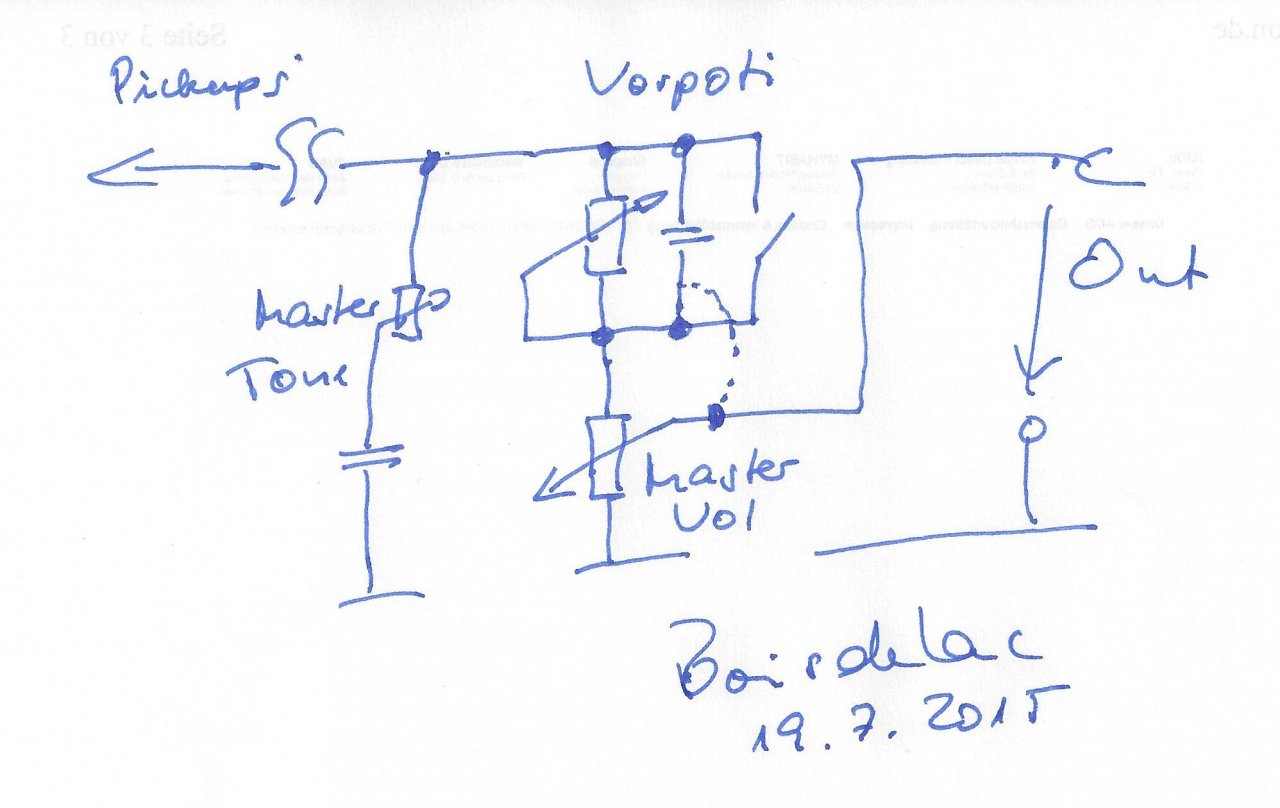 Seite 3 von 3
on.de
Pickups
Vorpoti
Out
Master
Tone
Master
Vol
Boisdelac
19.7.2015